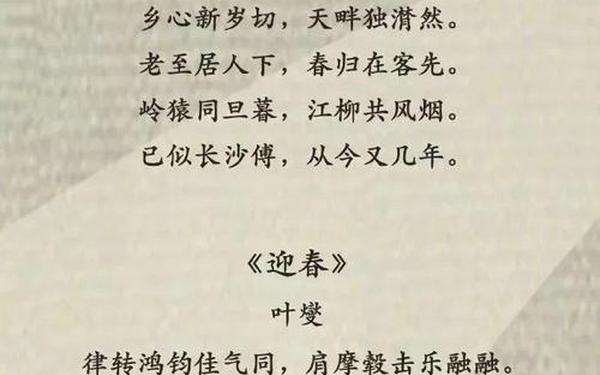 乡心新岁切，天畔独潸然。
老至居人下，春归在客先。
岭猿同旦暮，江柳共风烟。
已似长沙傅，从今又几年。
《迎春》
叶燮
律转鸿钧佳气同，肩摩毂击乐融融。